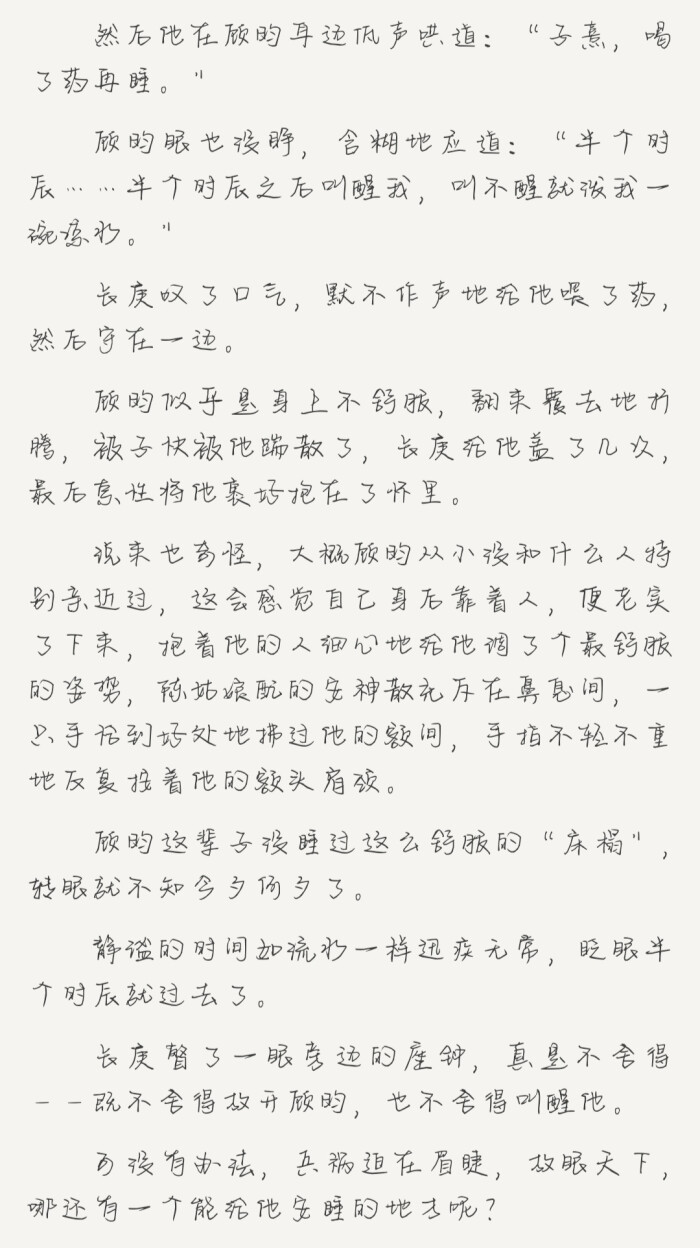 然后他在顾昀耳边低声哄道：“子熹，喝
了药再睡。”
顾昀眼也没睁，含糊地应道：“半个时
辰……半个时辰之后叫醒我，叫不醒就泼我一
碗凉水。”
长庚叹了口气，默不作声地给他喂了药，
然后守在一边。
顾昀似乎是身上不舒服，翻来覆去地折
腾，被子快被他踹散了，长庚给他盖了几次，
最后索性将他裹好抱在了怀里。
说来也奇怪，大概顾昀从小没和什么人特
别亲近过，这会感觉自己身后靠着人，便老实
了下来，抱着他的人细心地给他调了个最舒服
的姿势，陈姑娘配的安神散充斥在鼻息间，一
只手恰到好处地拂过他的额间，手指不轻不重
地反复按着他的额头肩颈。
顾昀这辈子没睡过这么舒服的“床榻”，
转眼就不知今夕何夕了。
静谧的时间如流水一样迅疾无常，眨眼半
个时辰就过去了。
长庚瞥了一眼旁边的座钟，真是不舍得
——既不舍得放开顾昀，也不舍得叫醒他。
可没有办法，兵祸迫在眉睫，放眼天下，
哪还有一个能给他安睡的地方呢？